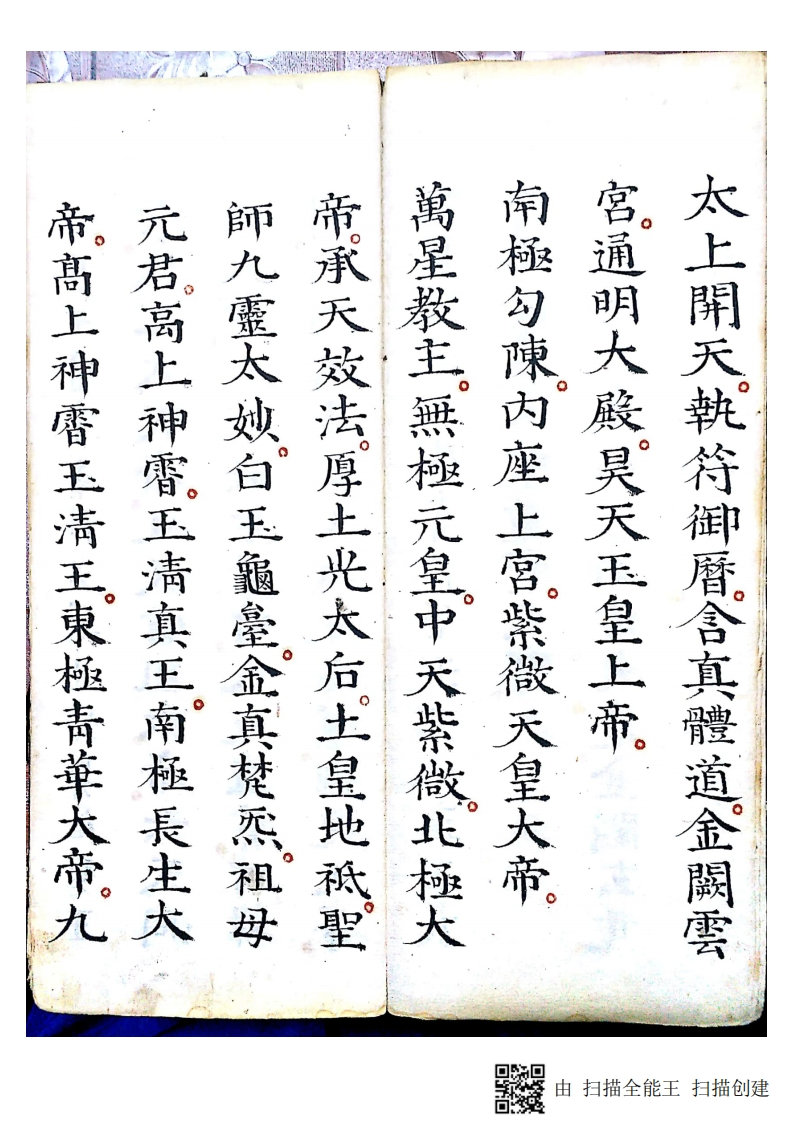 太上開天。執符御曆。含真體道。金闕雲
宮。通明大殿。昊天玉皇上帝。
南極勾陳。内座上宮。紫微天皇大帝。
萬星教主。無極元皇。中天紫微。北極大
帝。承天效法。厚土光太后。土皇地祇。聖
師九靈太妙。白玉龜臺。金真梵炁。祖母
元君。高上神霄。玉清真王。南極長生大
帝。高上神霄玉清王。東極青華大帝。九
由 扫描全能王 扫描创建